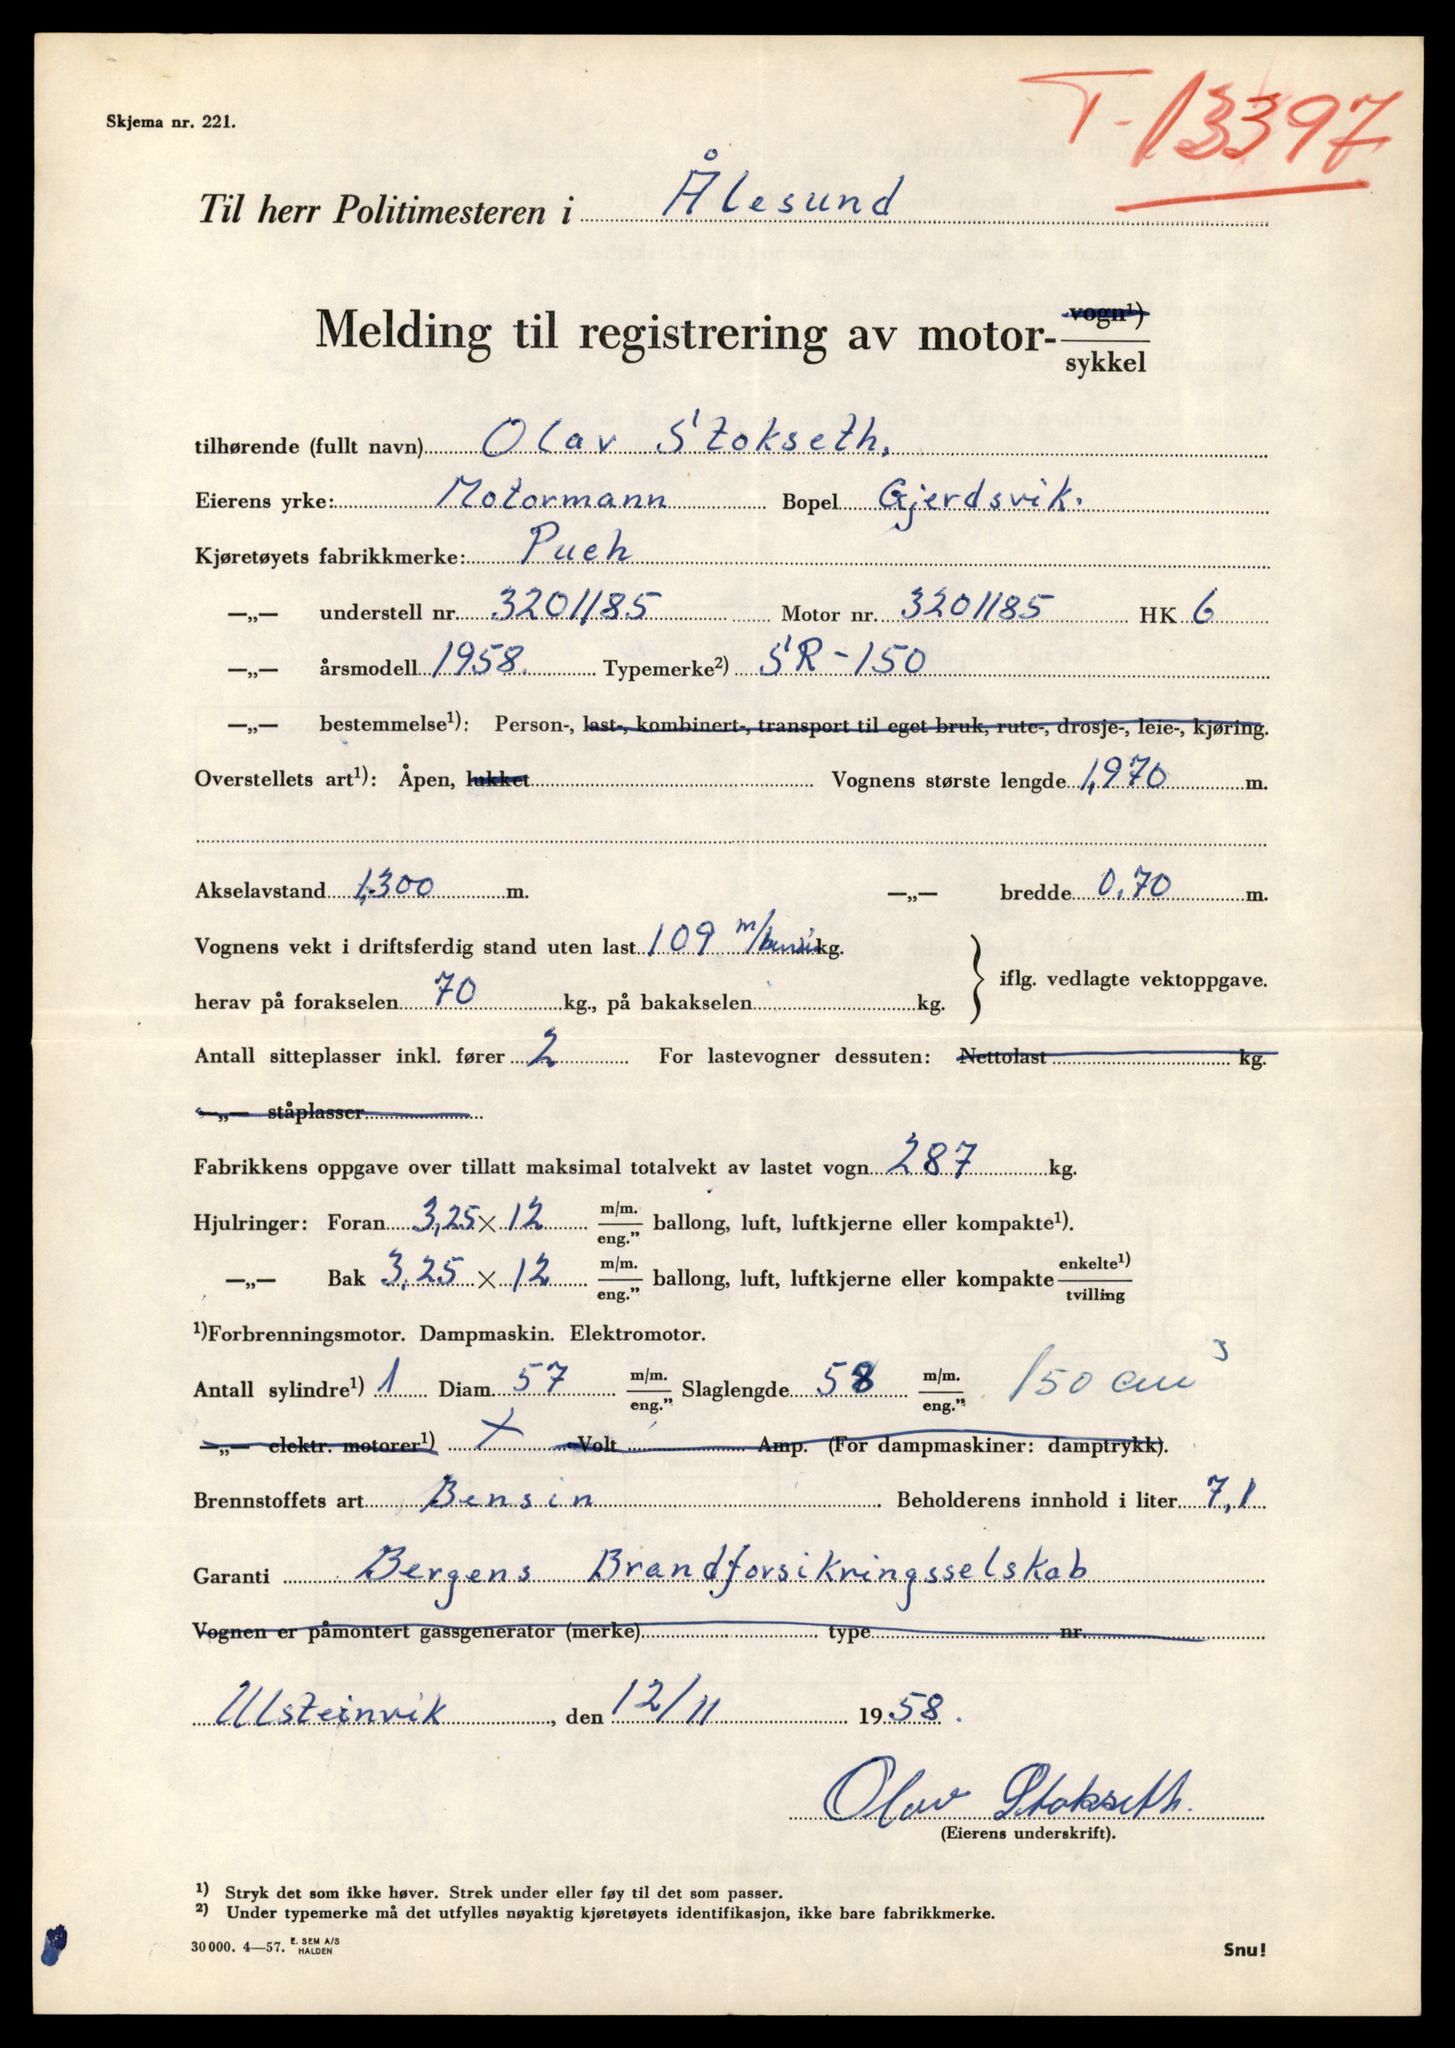 T-13397
Skjema nr. 221.
Til herr Politimesteren i Ålesund
Melding til registrering av motor- vogn¹) sykkel
tilhørende (fullt navn) Olav Stokseth.
Eierens yrke: Motormann Bopel Gjerdsvik.
Kjøretøyets fabrikkmerke: Puch
—„— understell nr. 3201185 Motor nr. 3201185 HK 6
—„— årsmodell 1958. Typemerke²) SR-150
—„— bestemmelse¹): Person-, last-, kombinert-, transport til eget bruk, rute-, drosje-, leie-, kjøring.
Overstellets art¹): Åpen, lukket Vognens største lengde 1,970 m.
Akselavstand 1,300 m. —„— bredde 0,70 m.
Vognens vekt i driftsferdig stand uten last 109 m/bensin kg.
herav på forakselen 70 kg., på bakakselen kg. } iflg. vedlagte vektoppgave.
Antall sitteplasser inkl. fører 2 For lastevogner dessuten: Nettolast kg.
—„— ståplasser
Fabrikkens oppgave over tillatt maksimal totalvekt av lastet vogn 287 kg.
Hjulringer: Foran 3,25 × 12 m/m. eng.” ballong, luft, luftkjerne eller kompakte¹).
—„— Bak 3,25 × 12 m/m. eng.” ballong, luft, luftkjerne eller kompakte enkelte¹) tvilling
¹)Forbrenningsmotor. Dampmaskin. Elektromotor.
Antall sylindre¹) 1 Diam. 57 m/m. eng.” Slaglengde 58 m/m. eng.” 150 cm³
—„— elektr. motorer¹) × Volt Amp. (For dampmaskiner: damptrykk).
Brennstoffets art Bensin. Beholderens innhold i liter 7,1
Garanti Bergens Brandforsikringsselskab
Vognen er påmontert gassgenerator (merke) type nr.
Ulsteinvik, den 12/11 1958.
Olav Stokseth.
(Eierens underskrift).
¹) Stryk det som ikke høver. Strek under eller føy til det som passer.
²) Under typemerke må det utfylles nøyaktig kjøretøyets identifikasjon, ikke bare fabrikkmerke.
30 000. 4—57. E. SEM A/S HALDEN Snu!